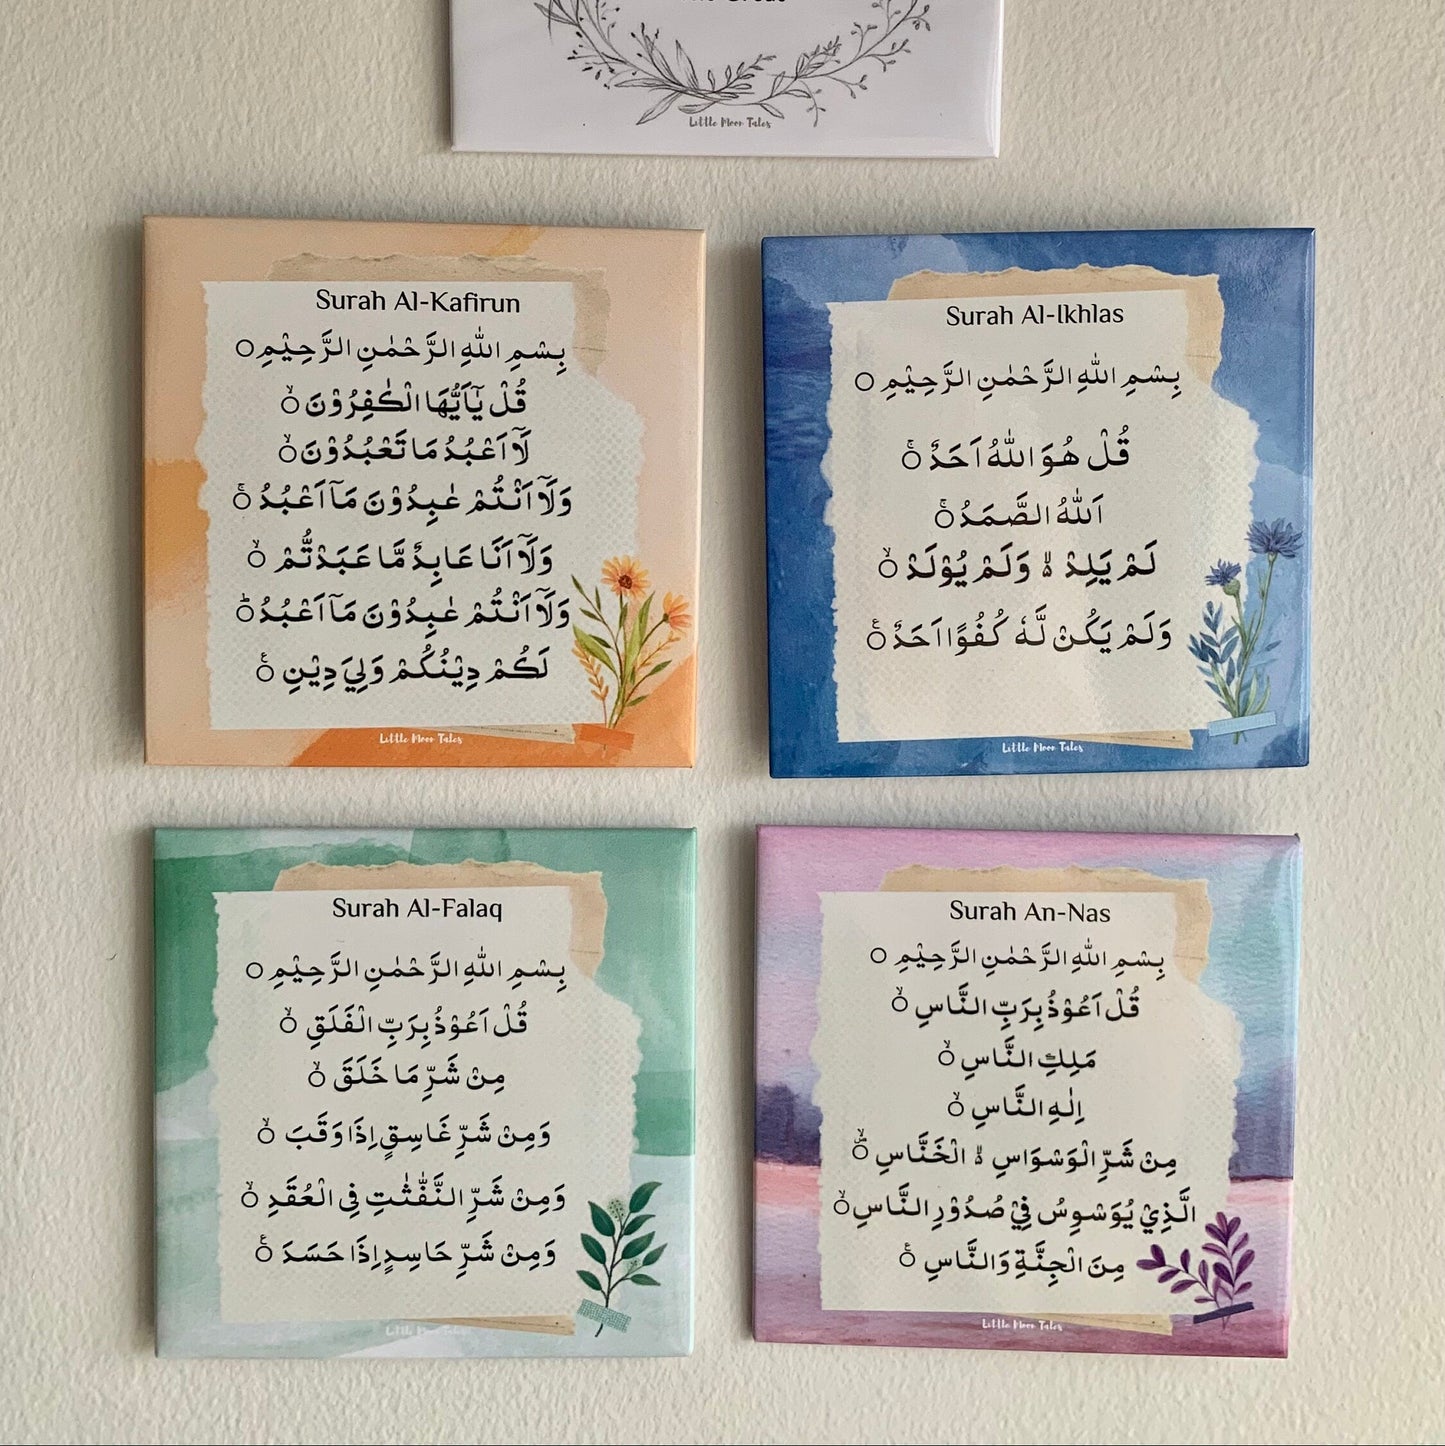 Little Moon Tales
Surah Al-Kafirun
بِسْمِ اللّٰهِ الرَّحْمٰنِ الرَّحِيْمِ ○
قُلْ يٰٓاَيُّهَا الْكٰفِرُوْنَ ○ۙ
لَآ اَعْبُدُ مَا تَعْبُدُوْنَ ○ۙ
وَلَآ اَنْتُمْ عٰبِدُوْنَ مَآ اَعْبُدُ ○ۚ
وَلَآ اَنَا عَابِدٌ مَّا عَبَدْتُّمْ ○ۙ
وَلَآ اَنْتُمْ عٰبِدُوْنَ مَآ اَعْبُدُ ○ؕ
لَكُمْ دِيْنُكُمْ وَلِيَ دِيْنِ ○ۧ
Little Moon Tales
Surah Al-Ikhlas
بِسْمِ اللّٰهِ الرَّحْمٰنِ الرَّحِيْمِ ○
قُلْ هُوَ اللّٰهُ اَحَدٌ ○ۚ
اَللّٰهُ الصَّمَدُ ○ۚ
لَمْ يَلِدْ ۙ۬ وَلَمْ يُوْلَدْ ○ۙ
وَلَمْ يَكُنْ لَّهٗ كُفُوًا اَحَدٌ ○ۧ
Little Moon Tales
Surah Al-Falaq
بِسْمِ اللّٰهِ الرَّحْمٰنِ الرَّحِيْمِ ○
قُلْ اَعُوْذُ بِرَبِّ الْفَلَقِ ○ۙ
مِنْ شَرِّ مَا خَلَقَ ○ۙ
وَمِنْ شَرِّ غَاسِقٍ اِذَا وَقَبَ ○ۙ
وَمِنْ شَرِّ النَّفّٰثٰتِ فِى الْعُقَدِ ○ۙ
وَمِنْ شَرِّ حَاسِدٍ اِذَا حَسَدَ ○ۧ
Little Moon Tales
Surah An-Nas
بِسْمِ اللّٰهِ الرَّحْمٰنِ الرَّحِيْمِ ○
قُلْ اَعُوْذُ بِرَبِّ النَّاسِ ○ۙ
مَلِكِ النَّاسِ ○ۙ
اِلٰهِ النَّاسِ ○ۙ
مِنْ شَرِّ الْوَسْوَاسِ ۙ۬ الْخَنَّاسِ ○ۙ
الَّذِيْ يُوَسْوِسُ فِيْ صُدُوْرِ النَّاسِ ○ۙ
مِنَ الْجِنَّةِ وَالنَّاسِ ○ۧ
Little Moon Tales